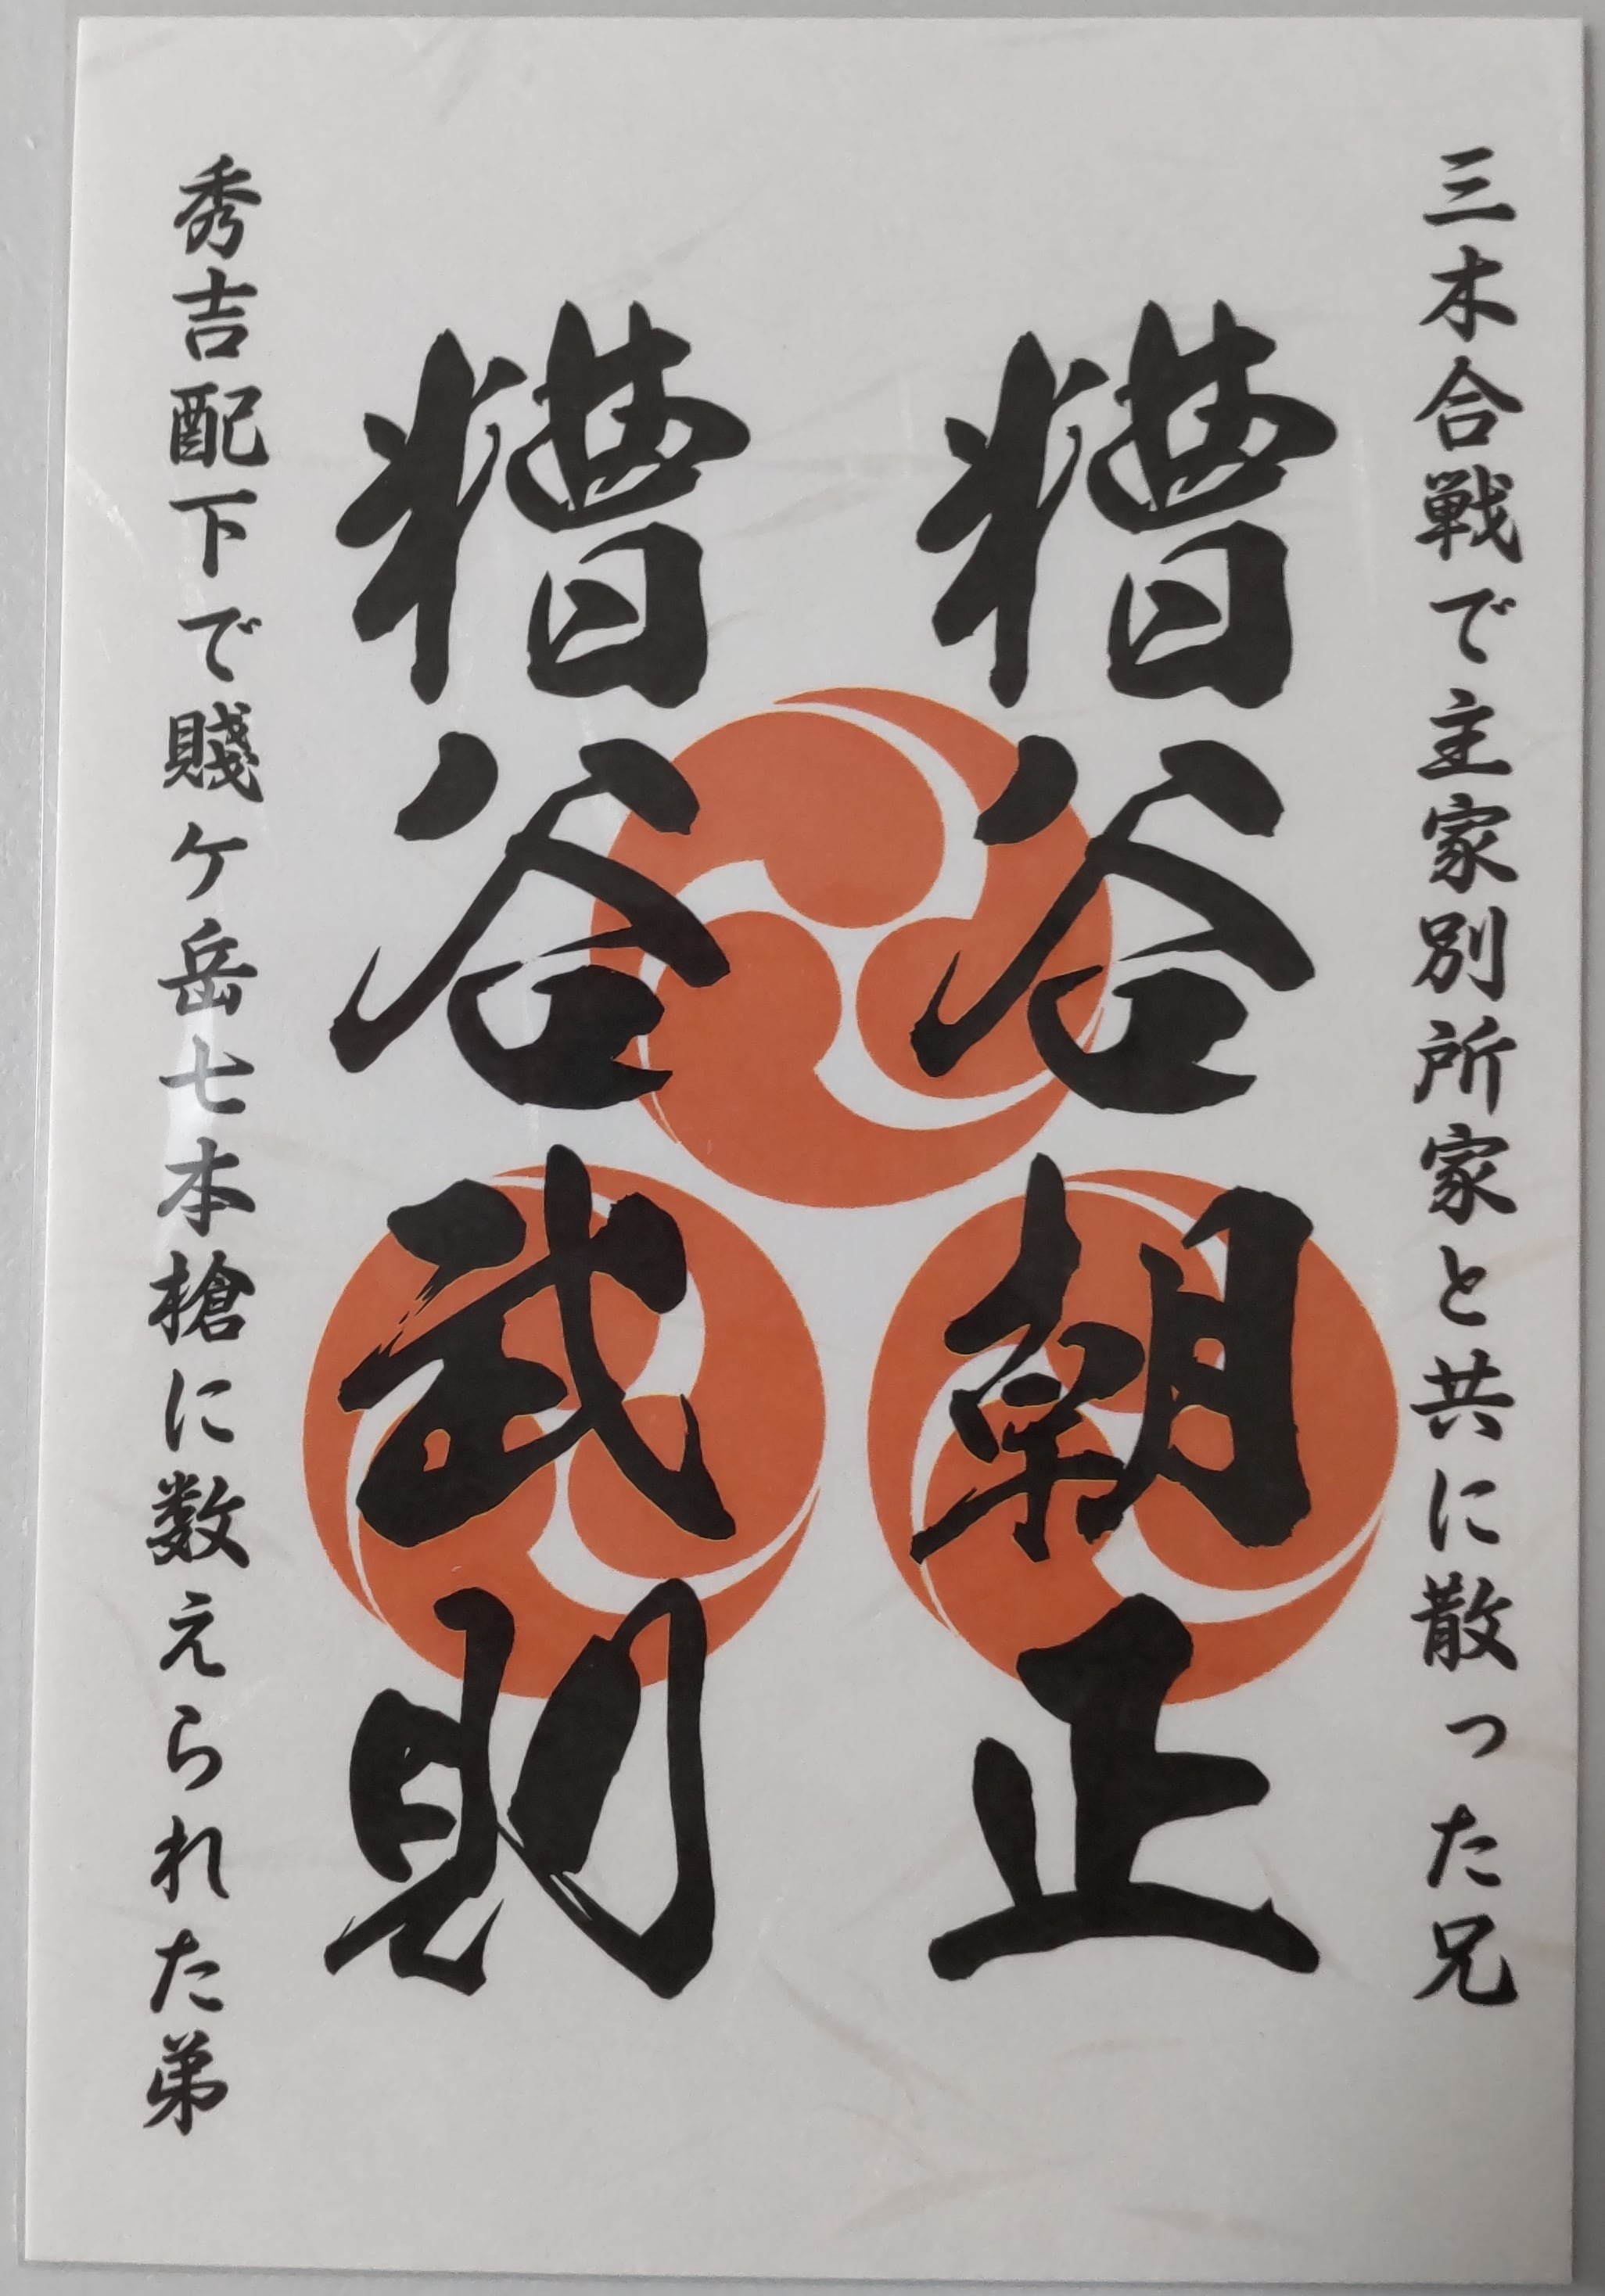 三木合戦で主家別所家と共に散った兄
糟谷朝正
糟谷武則
秀吉配下で賤ケ岳七本槍に数えられた弟